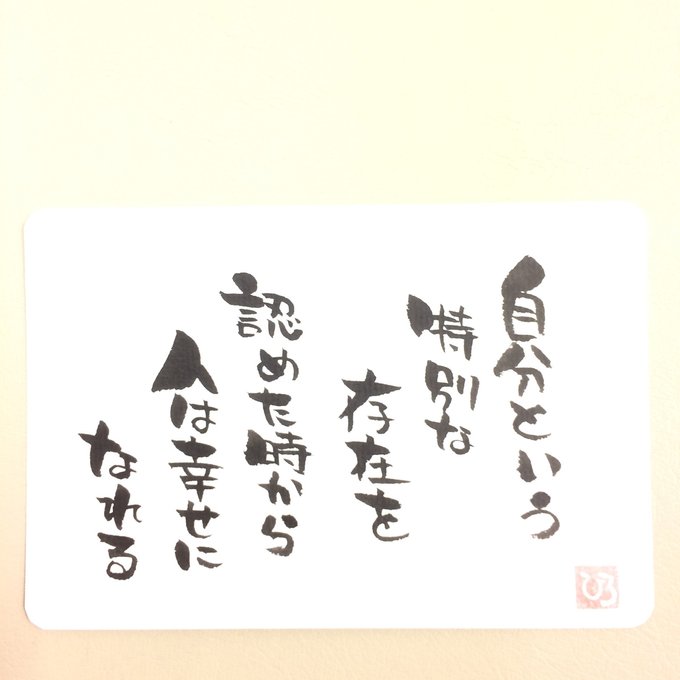 自分という
特別な
存在を
認めた時から
人は幸せに
なれる
ひろ